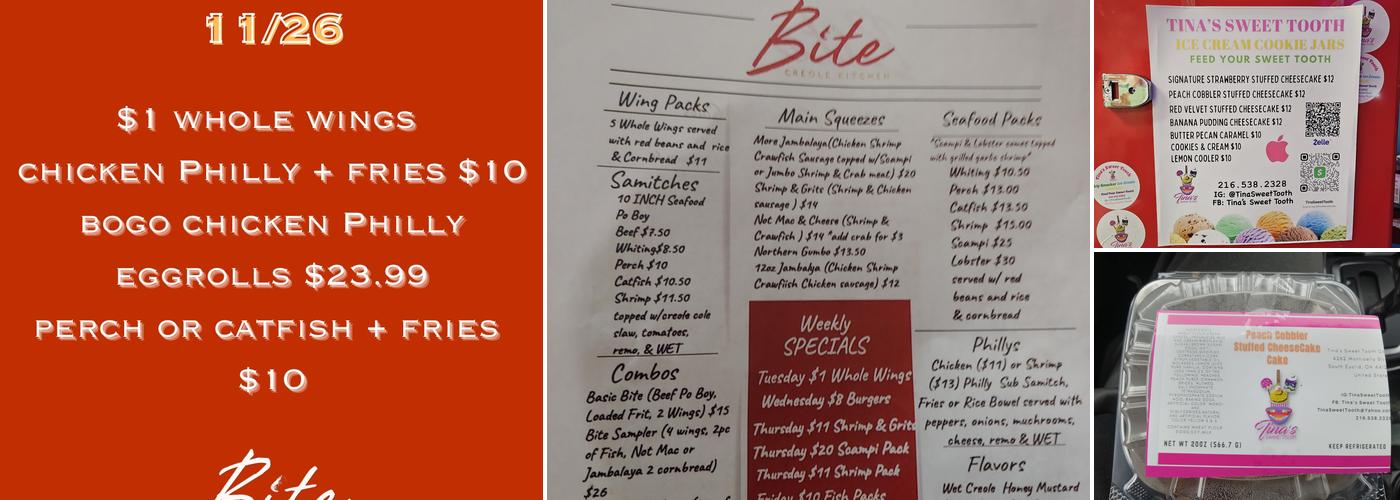 11/26
$1 WHOLE WINGS
CHICKEN PHILLY + FRIES $10
BOGO CHICKEN PHILLY
EGGROLLS $23.99
PERCH OR CATFISH + FRIES
$10
Bite
Bite
CREOLE KITCHEN
Wing Packs
5 Whole Wings served
with red beans and rice
& Cornbread $11
Samitches
10 INCH Seafood
Po Boy
Beef $7.50
Whiting $8.50
Perch $10
Catfish $10.50
Shrimp $11.50
topped w/creole cole
slaw, tomatoes,
remo, & WET
Combos
Basic Bite (Beef Po Boy,
Loaded Frit, 2 Wings) $15
Bite Sampler (4 wings, 2pc
of Fish, Not Mac or
Jambalaya 2 cornbread)
$26
Main Squeezes
More Jambalaya (Chicken Shrimp
Crawfish Sausage topped w/Scampi
or Jumbo Shrimp & Crab meat) $20
Shrimp & Grits (Shrimp & Chicken
sausage) $14
Not Mac & Cheese (Shrimp &
Crawfish) $14 *add crab for $3
Northern Gumbo $13.50
12oz Jambalya (Chicken Shrimp
Crawfiish Chicken sausage) $12
Weekly
SPECIALS
Tuesday $1 Whole Wings
Wednesday $8 Burgers
Thursday $11 Shrimp & Grits
Thursday $20 Scampi Pack
Thursday $11 Shrimp Pack
Friday $10 Fish Packs
Seafood Packs
*Scampi & Lobster comes topped
with grilled garlic shrimp*
Whiting $10.50
Perch $13.00
Catfish $13.50
Shrimp $15.00
Scampi $25
Lobster $30
served w/ red
beans and rice
& cornbread
Phillys
Chicken ($11) or Shrimp
($13) Philly Sub Samitch,
Fries or Rice Bowel served with
peppers, onions, muchrooms,
cheese, remo & WET
Flavors
Wet Creole Honey Mustard
TINA'S SWEET TOOTH
ICE CREAM COOKIE JARS
FEED YOUR SWEET TOOTH
SIGNATURE STRAWBERRY STUFFED CHEESECAKE $12
PEACH COBBLER STUFFED CHEESECAKE $12
RED VELVET STUFFED CHEESECAKE $12
BANANA PUDDING CHEESECAKE $12
BUTTER PECAN CARAMEL $10
COOKIES & CREAM $10
LEMON COOLER $10
Zelle
216.538.2328
IG: @TinaSweetTooth
FB: Tina's Sweet Tooth
Tina's
TinaSweetTooth
Peach Cobbler
Stuffed CheeseCake
Cake
Tina's Sweet Tooth
South Euclid, OH
United States
IG:TinaSweetTooth
FB: Tina's Sweet Tooth
TinaSweetTooth@Yahoo.com
216.538.2328
Tina's
SWEET TOOTH
NET WT 20OZ (566.7 G)
KEEP REFRIGERATED